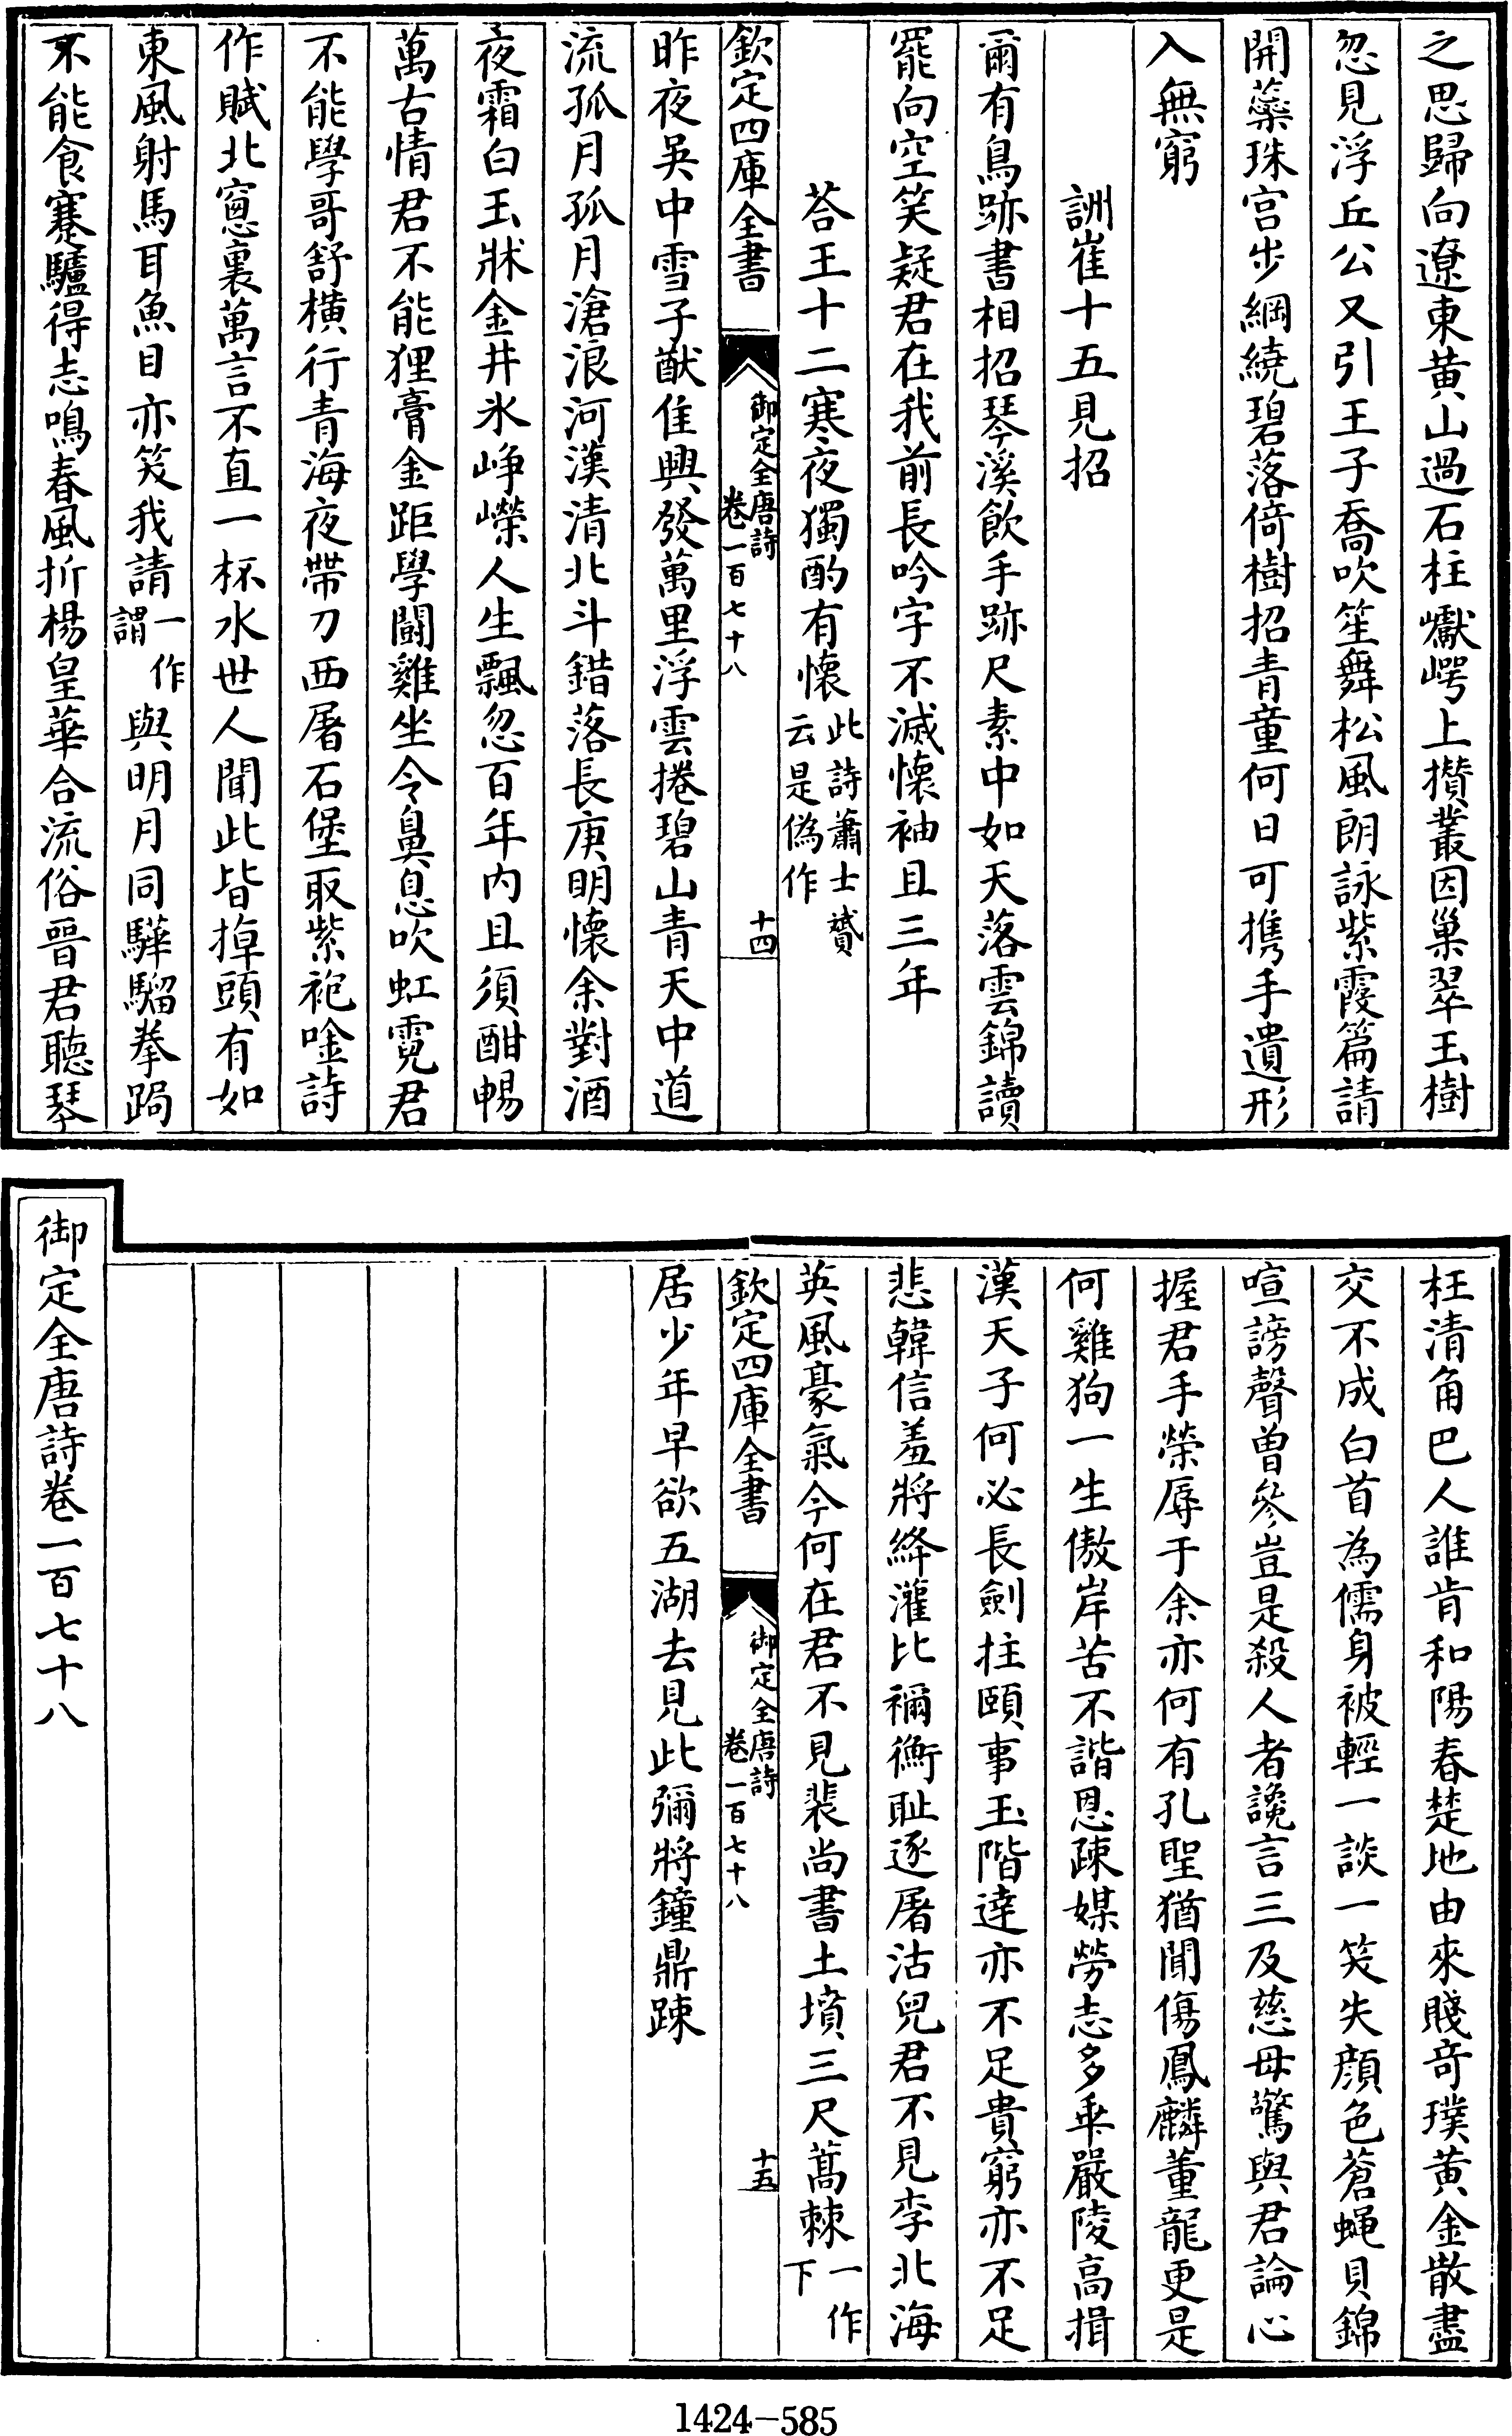 之思歸向遼東黄山過石柱巘崿上攢叢因巢翠玉樹
忽見浮丘公又引王子喬吹笙舞松風朗詠紫霞篇請
開蘂珠宫步綱繞碧落倚樹招青童何日可攜手遺形
入無窮
詶崔十五見招
爾有鳥跡書相招琴溪飲手跡尺素中如天落雲錦讀
罷向空笑疑君在我前長吟字不滅懷袖且三年
荅王十二寒夜獨酌有懷此詩蕭士贇云是偽作
欽定四庫全書 御定全唐詩 卷一百七十八 十四
昨夜吴中雪子猷佳興發萬里浮雲捲碧山青天中道
流孤月孤月滄浪河漢清北斗錯落長庚明懷余對酒
夜霜白玉牀金井氷崢嶸人生飄忽百年内且須酣暢
萬古情君不能狸膏金距學鬭雞坐令鼻息吹虹霓君
不能學哥舒横行青海夜帶刀西屠石堡取紫袍唫詩
作賦北窻裏萬言不直一杯水世人聞此皆掉頭有如
東風射馬耳魚目亦笑我請一作謂與明月同驊騮拳跼
不能食蹇驢得志鳴春風折楊皇華合流俗晉君聽琴
枉清角巴人誰肯和陽春楚地由來賤竒璞黄金散盡
交不成白首為儒身被輕一談一笑失顔色蒼蠅貝錦
喧謗聲曽參豈是殺人者讒言三及慈母驚與君論心
握君手榮辱于余亦何有孔聖猶聞傷鳳麟董龍更是
何雞狗一生傲岸苦不諧恩疎媒勞志多乖嚴陵高揖
漢天子何必長劍拄頤事玉階達亦不足貴窮亦不足
悲韓信羞將絳灌比禰衡耻逐屠沽兒君不見李北海
英風豪氣今何在君不見裴尚書土墳三尺蒿棘一作下
欽定四庫全書 御定全唐詩 卷一百七十八 十五
居少年早欲五湖去見此彌將鐘鼎疎
御定全唐詩卷一百七十八
1424-585